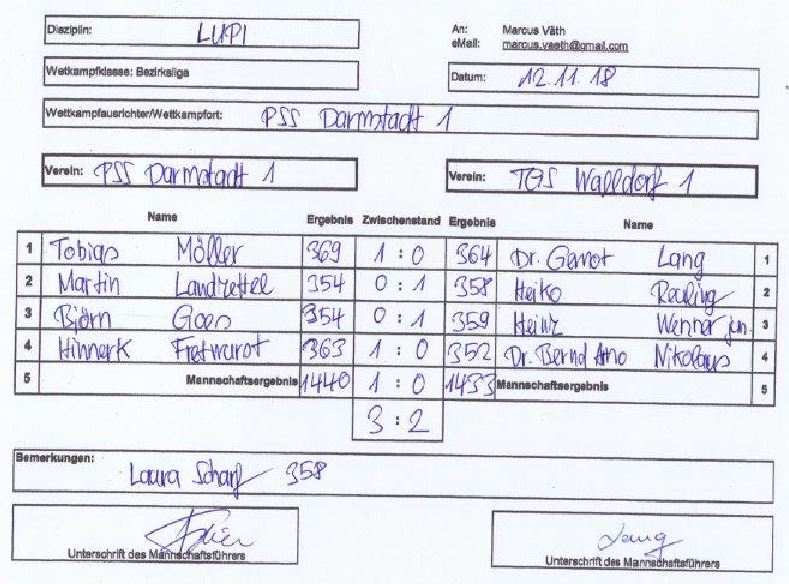 Disziplin: LUPI
An: Marcus Väth
eMail: marcus.vaeth@gmail.com
Wettkampfklasse: Bezirksliga
Datum: 12.11.18
Wettkampfausrichter/Wettkampfort: PSS Darmstadt 1
Verein: PSS Darmstadt 1
Verein: TGS Walldorf 1
Name Ergebnis Zwischenstand Ergebnis Name
1 Tobias Möller 369 1 : 0 364 Dr. Gernot Lang 1
2 Martin Landzettel 354 0 : 1 358 Heiko Reuling 2
3 Björn Goes 354 0 : 1 359 Heinz Wenner jun. 3
4 Hinnerk 363 1 : 0 352 Dr. Bernd Arno Nikolaus 4
5 Mannschaftsergebnis 1440 1 : 0 1433 Mannschaftsergebnis 5
3 : 2
Bemerkungen:
Laura Scharf 358
Lang
Unterschrift des Mannschaftsführers
Unterschrift des Mannschaftsführers